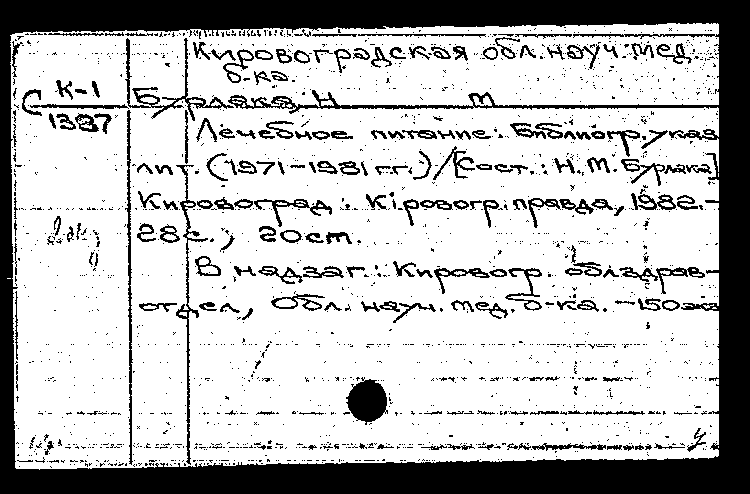 Кировоградская обл. науч. мед.
б-ка.
К-1
С
1387
Бурлака, Н М
Лечебное питание: Библиогр. указ
лит. (1971-1981 гг.) / [Сост.: Н. М. Бурлака]
Кировоград: Кiровогр. правда, 1982.-
28 с.; 20 см.
2 экз
В надзаг.: Кировогр. облздрав-
отдел, Обл. науч. мед. б-ка. - 150 экз
у